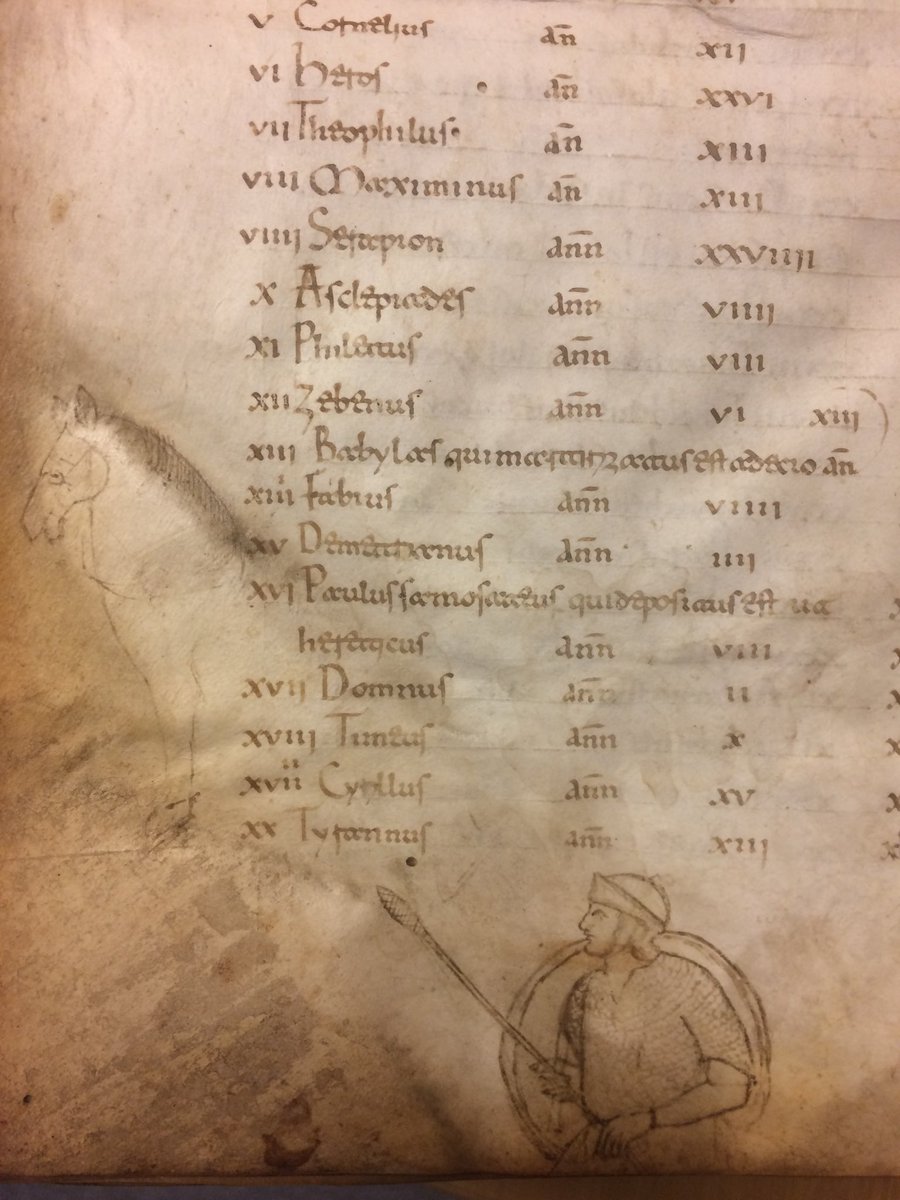 v Cornelius an̄ xii
vi heros an̄ xxvi
vii Theophilus an̄ xiii
viii Maximinus an̄ xiii
viiii Serapion ann̄ xxviiii
x Asclepiades ann̄ viiii
xi Philetus ann̄ viii
xii Zebenus ann̄ vi xiii
xiii Babylas qui martirizatus est a decio an̄
xiiii Fabius ann̄ viiii
xv Demetrianus ann̄ iiii
xvi Paulus samosateus qui depositus est ut
hereticus ann̄ viii
xvii Domnus ann̄ ii
xviii Timeus ann̄ x
xviiii Cyrillus ann̄ xv
xx Tyrannus ann̄ xiii